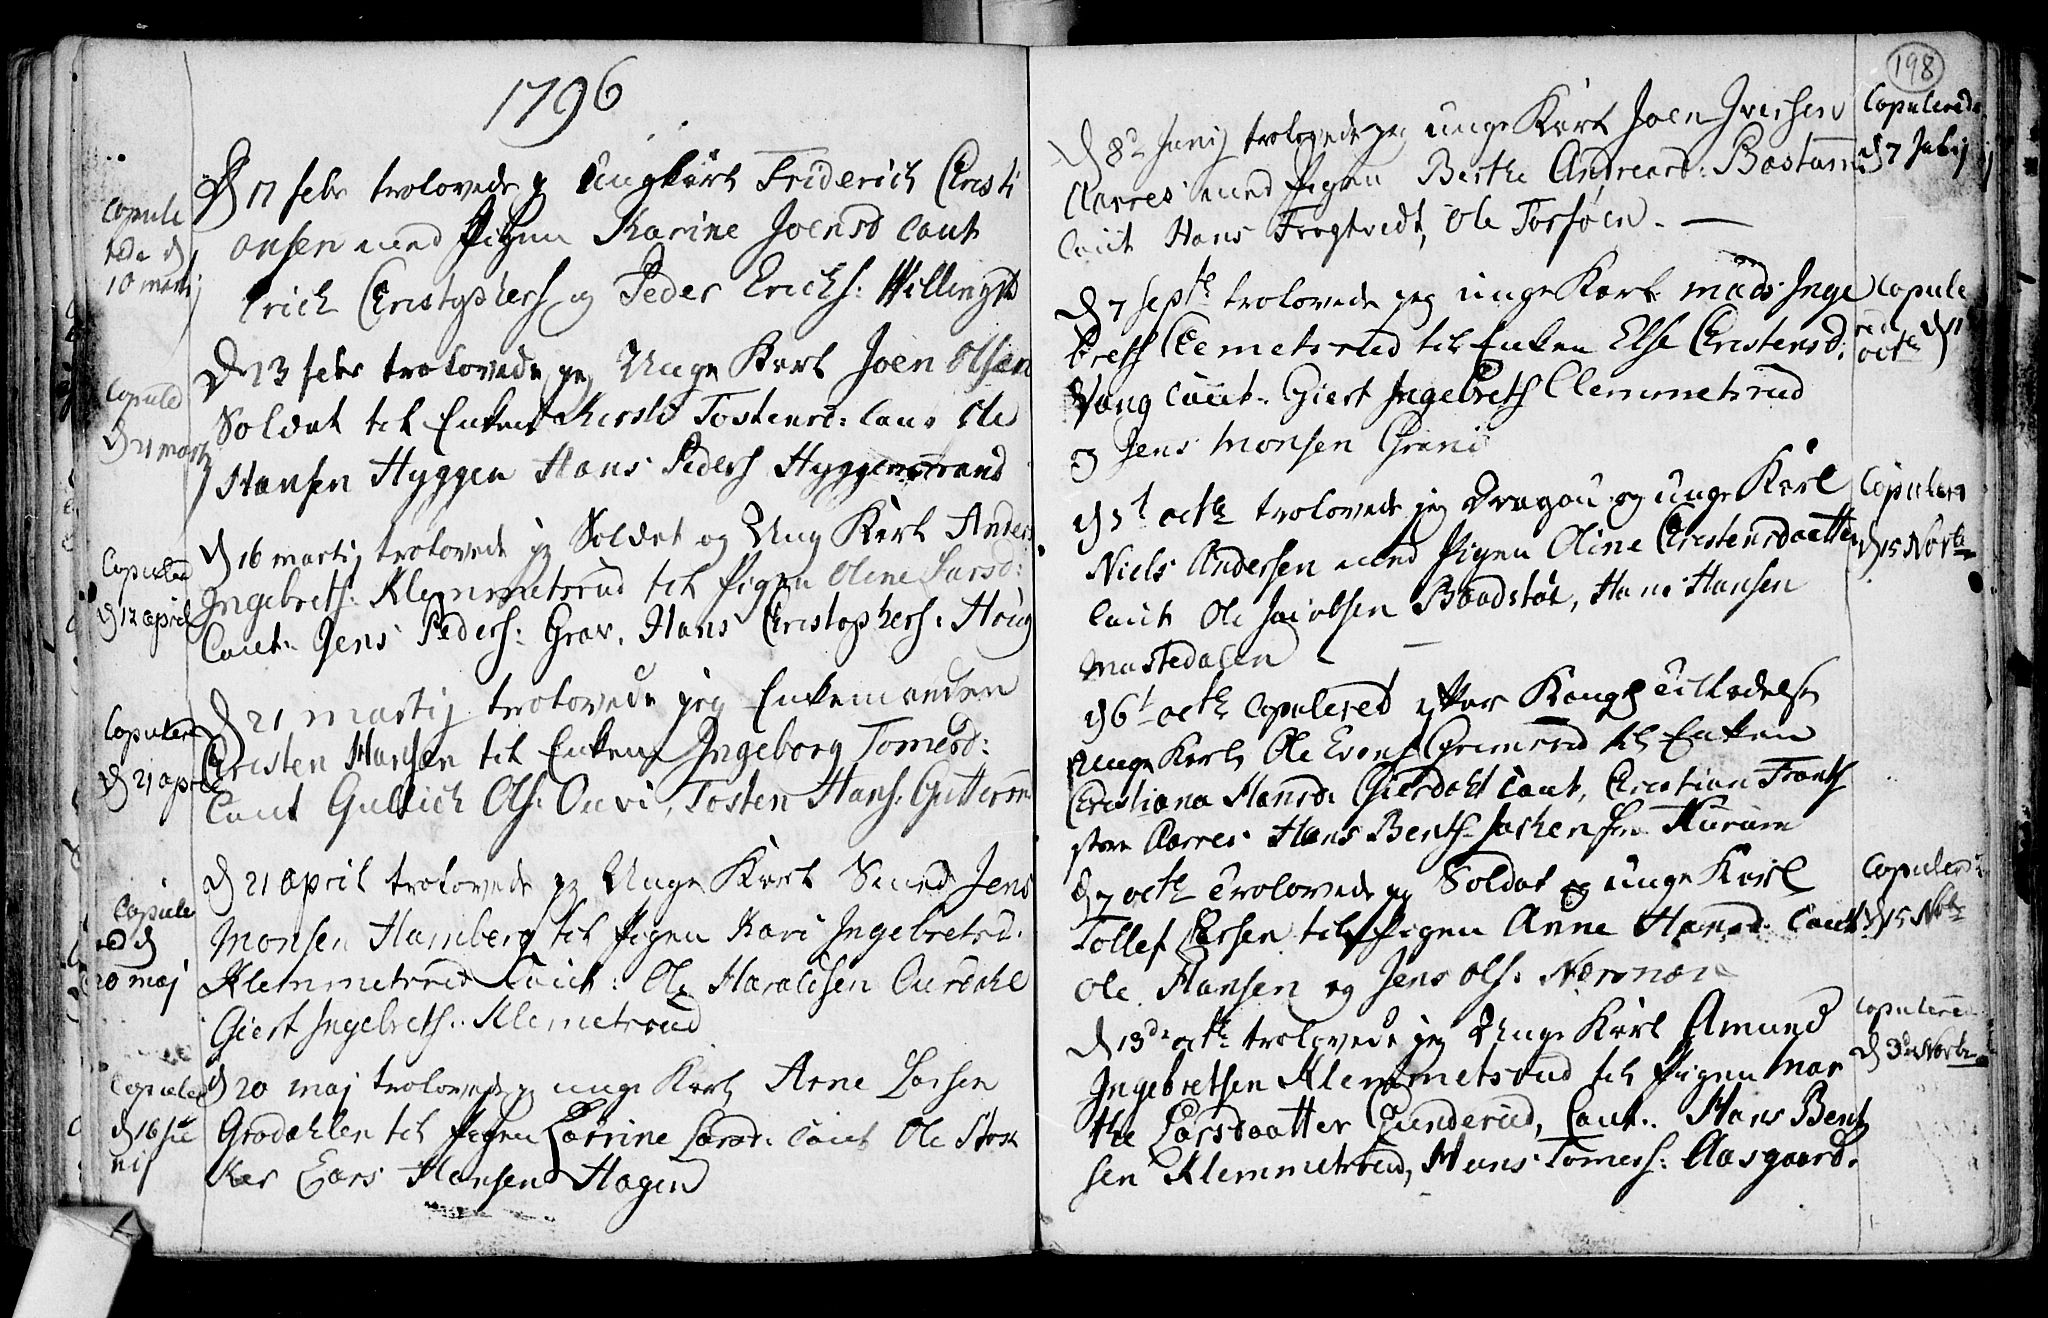 1796
D 17 febr trolovede jeg Ungkarl Friderich Christi
ansen med Pigen Karine Joensd Caut
Erich Christophers og Peder Erichs: Hillingst
Copule
rede d
10 martij
D 23 febr trolovede jeg Unge Karl Joen Olsen
Soldat til Enken Kirsti Tostensd: Caut Ole
Hansen Hyggen Hans Peders Hyggenstrand
Copuled
d 21 martj
d 16 martij trolovede jeg Soldat og Ung Karl Anders
Ingebrets: Klemmetsrud til Pigen Oline Larsd:
Caut: Jens Peders: Grav. Hans Christophers: Houg
Copuled
d 12 april
d 21 martij trolovede jeg Enkemanden
Christen Hansen til Enken Ingeborg Tomesd:
Caut Gullich Ols: Ouvi, Tosten Hans: Gutterm
Copulere
d 21 april
d 21 april trolovede jeg Unge Karl Smed Jens
Monsen Hamberg til Pigen Kari Ingebretsd.
Klemmetsrud Caut: Ole Haraldsen Ouerdahl
Giert Ingebrets: Klemetsrud
Copule
red d
20 maj
d 20 maj trolovede jeg unge Karl Arne Larsen
Grodahlen til Pigen Cathrine Larsd: Caut Ole Stok
ker Lars Hansen Hagen
Copuled
d 16 ju
nij
198
d 8de Junij trolovede jeg unge Karl Joen Iversen
Aarres med Pigen Berthe Andreasd: Bastum
Caut Hans Frogtvedt, Ole Torsøen. —
Copulerede
d 7 Julij
D 7 septb trolovede jeg unge Karl Mads Inge
brets Clemetsrud til Enken Else Christensd:
Vang Caut. Giert Ingebrets Clemmetsrud
og Jens Monsen Grani
Copule
red d 11
octb
d 5t octb trolovede jeg Dragon og unge Karl
Niels Andersen med Pigen Oline Christensdaatter
Caut Ole Jacobsen Baadstøe, Hans Hansen
Mustedalen —
Copulere
d 15 Novb
d 6t octb Copulered efter Kongl tilladelse
unge Karl Ole Evens Grimsrud til Enken
Christiana Hansd: Gierdahl Caut, Christian Frants
store Aarres Hans Bents Jachen fra Hurum
d 7 octb Trolovede jeg Soldat og unge Karl
Tollef Larsen til Pigen Anne Hansd. Caut
Ole Hansen og Jens Ols: Nærsnæs
Copulered
d 15 Nobr
D 13de octb trolovede jeg Unge Karl Amund
Ingebretsen Klemmetsrud til Pigen Mar
the Larsdaatter Gunderud, Caut. Hans Bent
sen Klemmetsrud, Hans Tomess: Aasgaard.
Copulered
d 3de Novbr